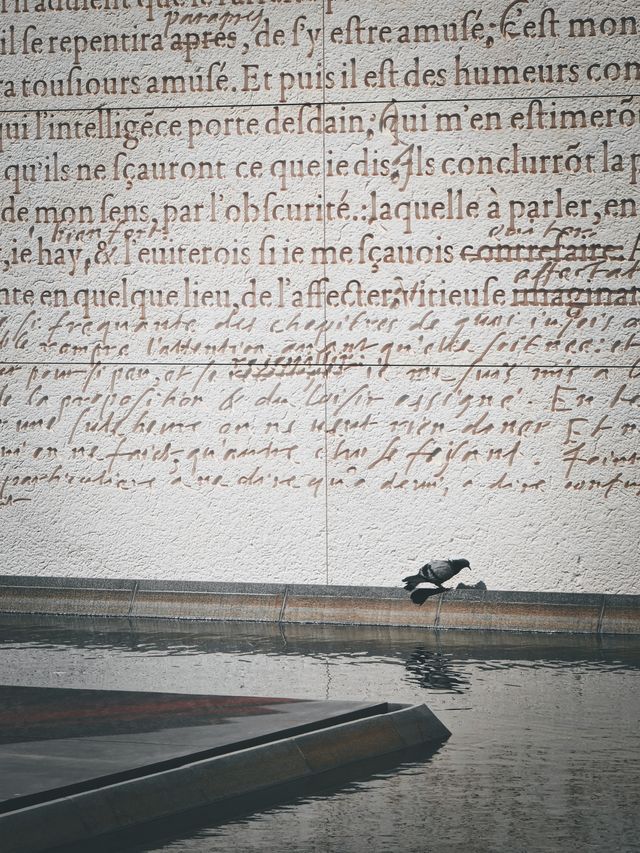 que le
parapres
il ſe repentira apres, de ſ'y eſtre amuſé; C'eſt mon
ra touſiours amuſé. Et puis il eſt des humeurs com
qui l'intelligẽce porte deſdain, qui m'en eſtimerõ
qu'ils ne ſçauront ce que ie dis, Ils conclurrõt la p
de mon ſens, par l'obſcurité.: laquelle à parler, en
bien fort
, ie hay, & l'euiterois ſi ie me ſçauois contrefaire.
affectat
nte en quelque lieu, de l'affecter, Vitieuſe imaginat
si frequante des chapitres de quoi j'usois a
ble rompre l'attention avant qu'elle soit nee: et
er pour si peu, et se ie me suis mis a l
de la proposition & du loisir assigné. En te
une sule heure on ne veut rien doner Et n
on ne faict qu'autre chose faisant. Joint
particuliere a ne dire qu'a demi, a dire confus